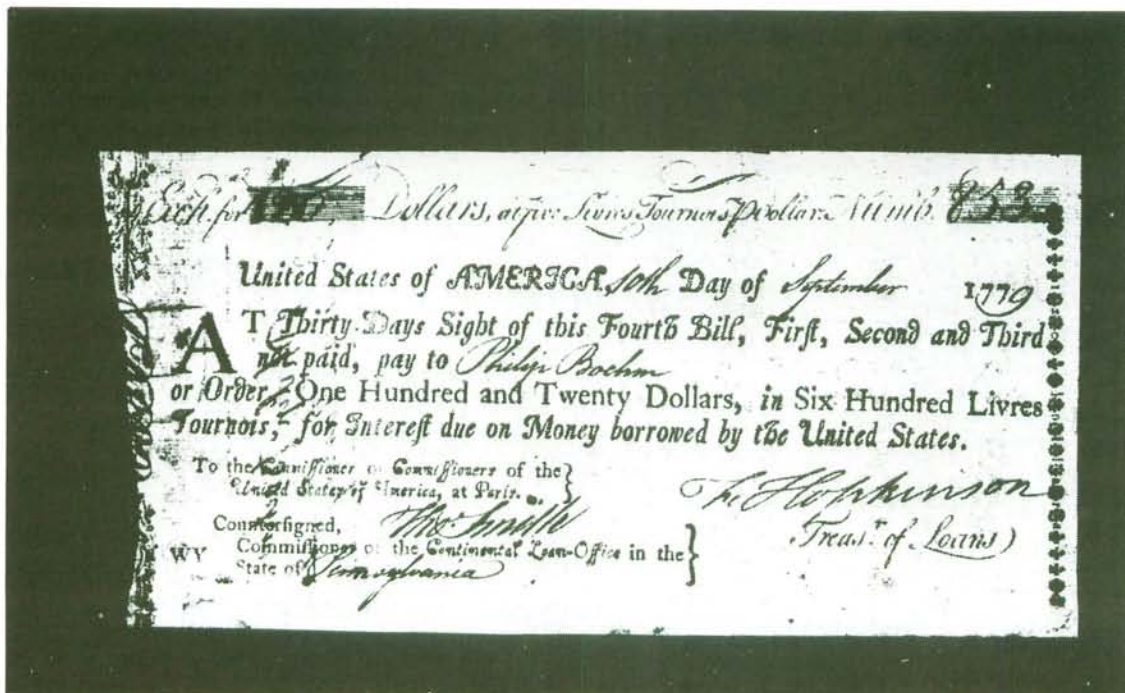 Exch. for 120 Dollars, at five Livres Tournois P Dollar. Numb. 853
United States of AMERICA, 10th Day of September 1779
AT Thirty Days Sight of this Fourth Bill, First, Second and Third
not paid, pay to Philip Boehm
or Order, One Hundred and Twenty Dollars, in Six Hundred Livres
Tournois, for Interest due on Money borrowed by the United States.
To the Commissioner or Commissioners of the
United States of America, at Paris.
Fs. Hopkinson
Treasr. of Loans
Countersigned, Thos. Smith
WY Commissioner of the Continental Loan-Office in the
State of Pennsylvania